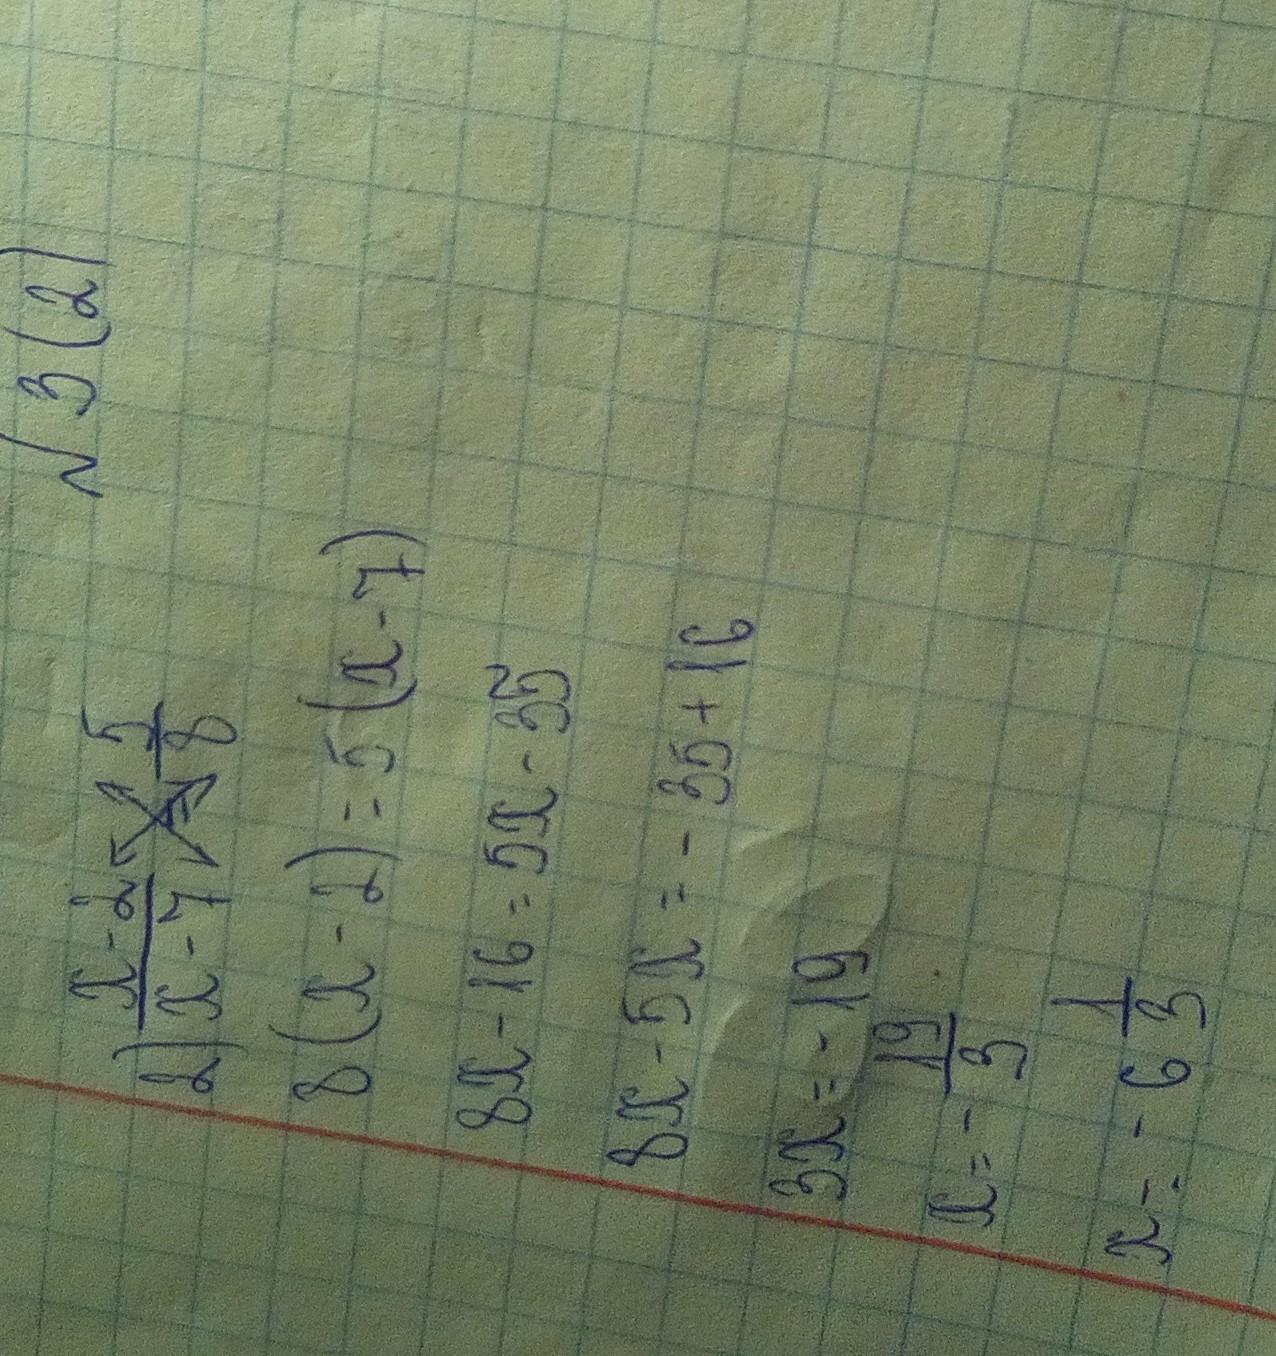 № 3 (2)
2) \frac{x-2}{x-7} = \frac{5}{8}
8(x-2) = 5(x-7)
8x - 16 = 5x - 35
8x - 5x = - 35 + 16
3x = - 19
x = - \frac{19}{3}
x = - 6 \frac{1}{3}